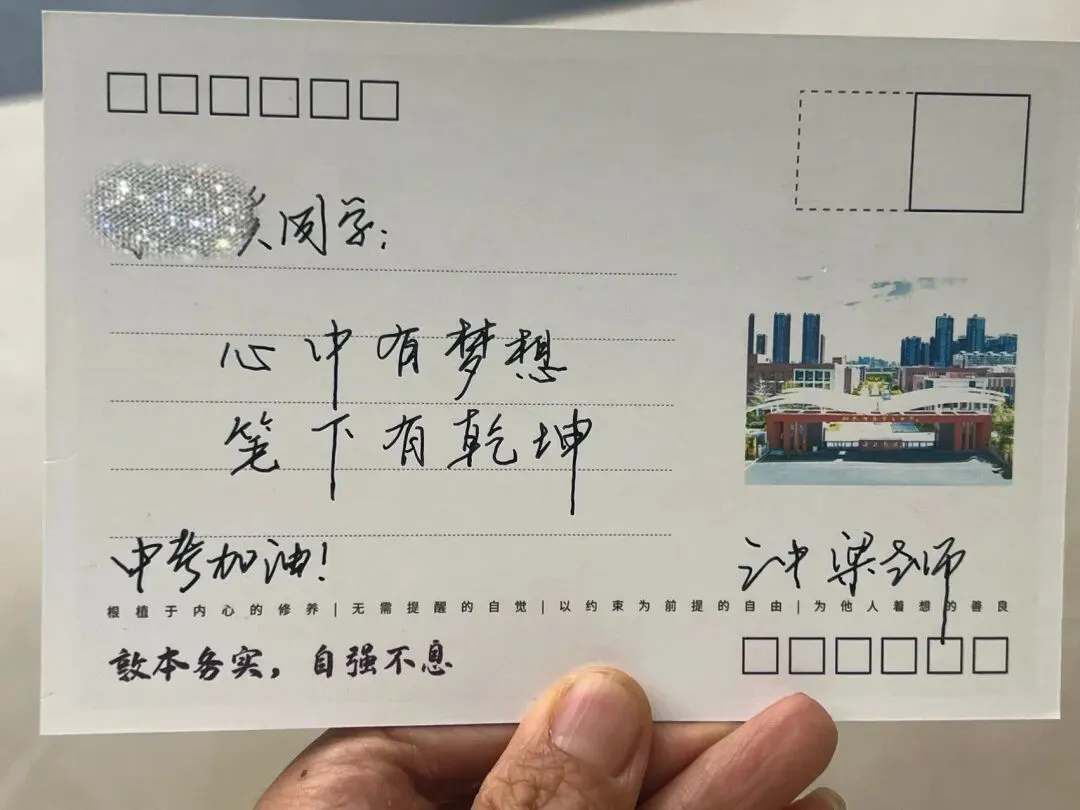 同学：
心中有梦想
笔下有乾坤
中考加油！
梁老师
根植于内心的修养|无需提醒的自觉|以约束为前提的自由|为他人着想的善良
敦本务实，自强不息